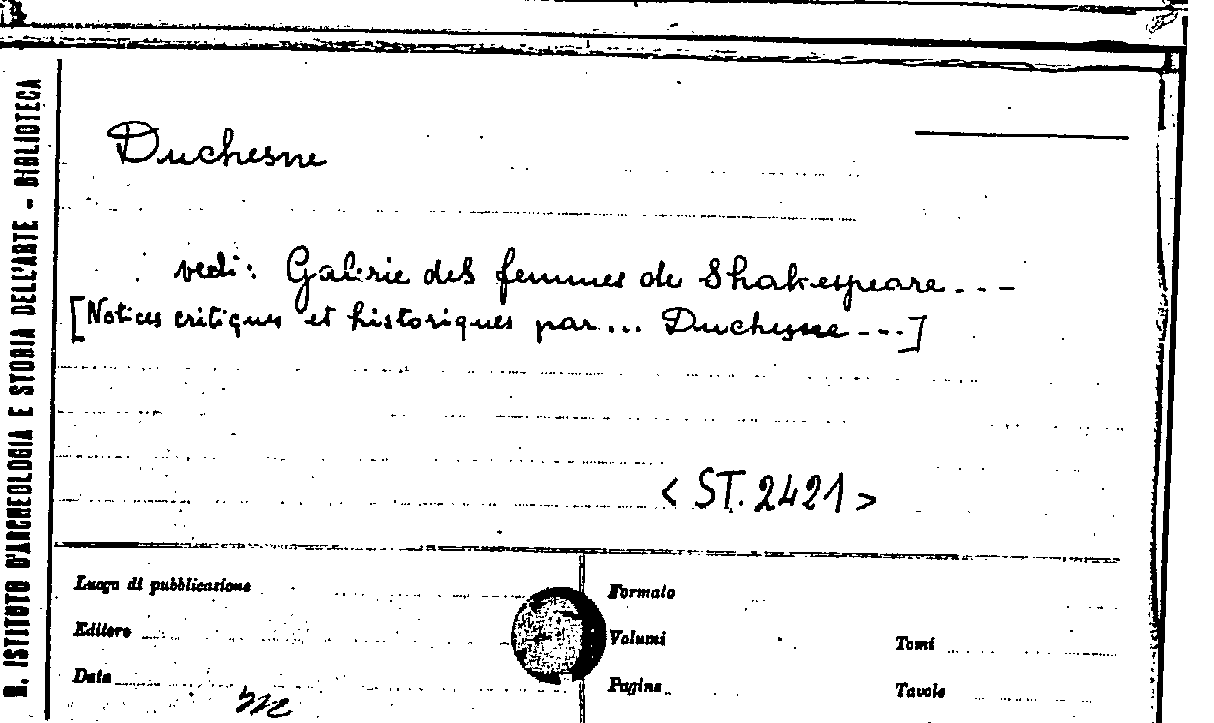 R. ISTITUTO D'ARCHEOLOGIA E STORIA DELL'ARTE - BIBLIOTECA
Duchesne
vedi: Galerie des femmes de Shakespeare---
[Notices critiques et historiques par... Duchesne---]
< ST. 2421 >
Luogo di pubblicazione
Formato
Editore
Volumi
Tomi
Data
Pagine
Tavole